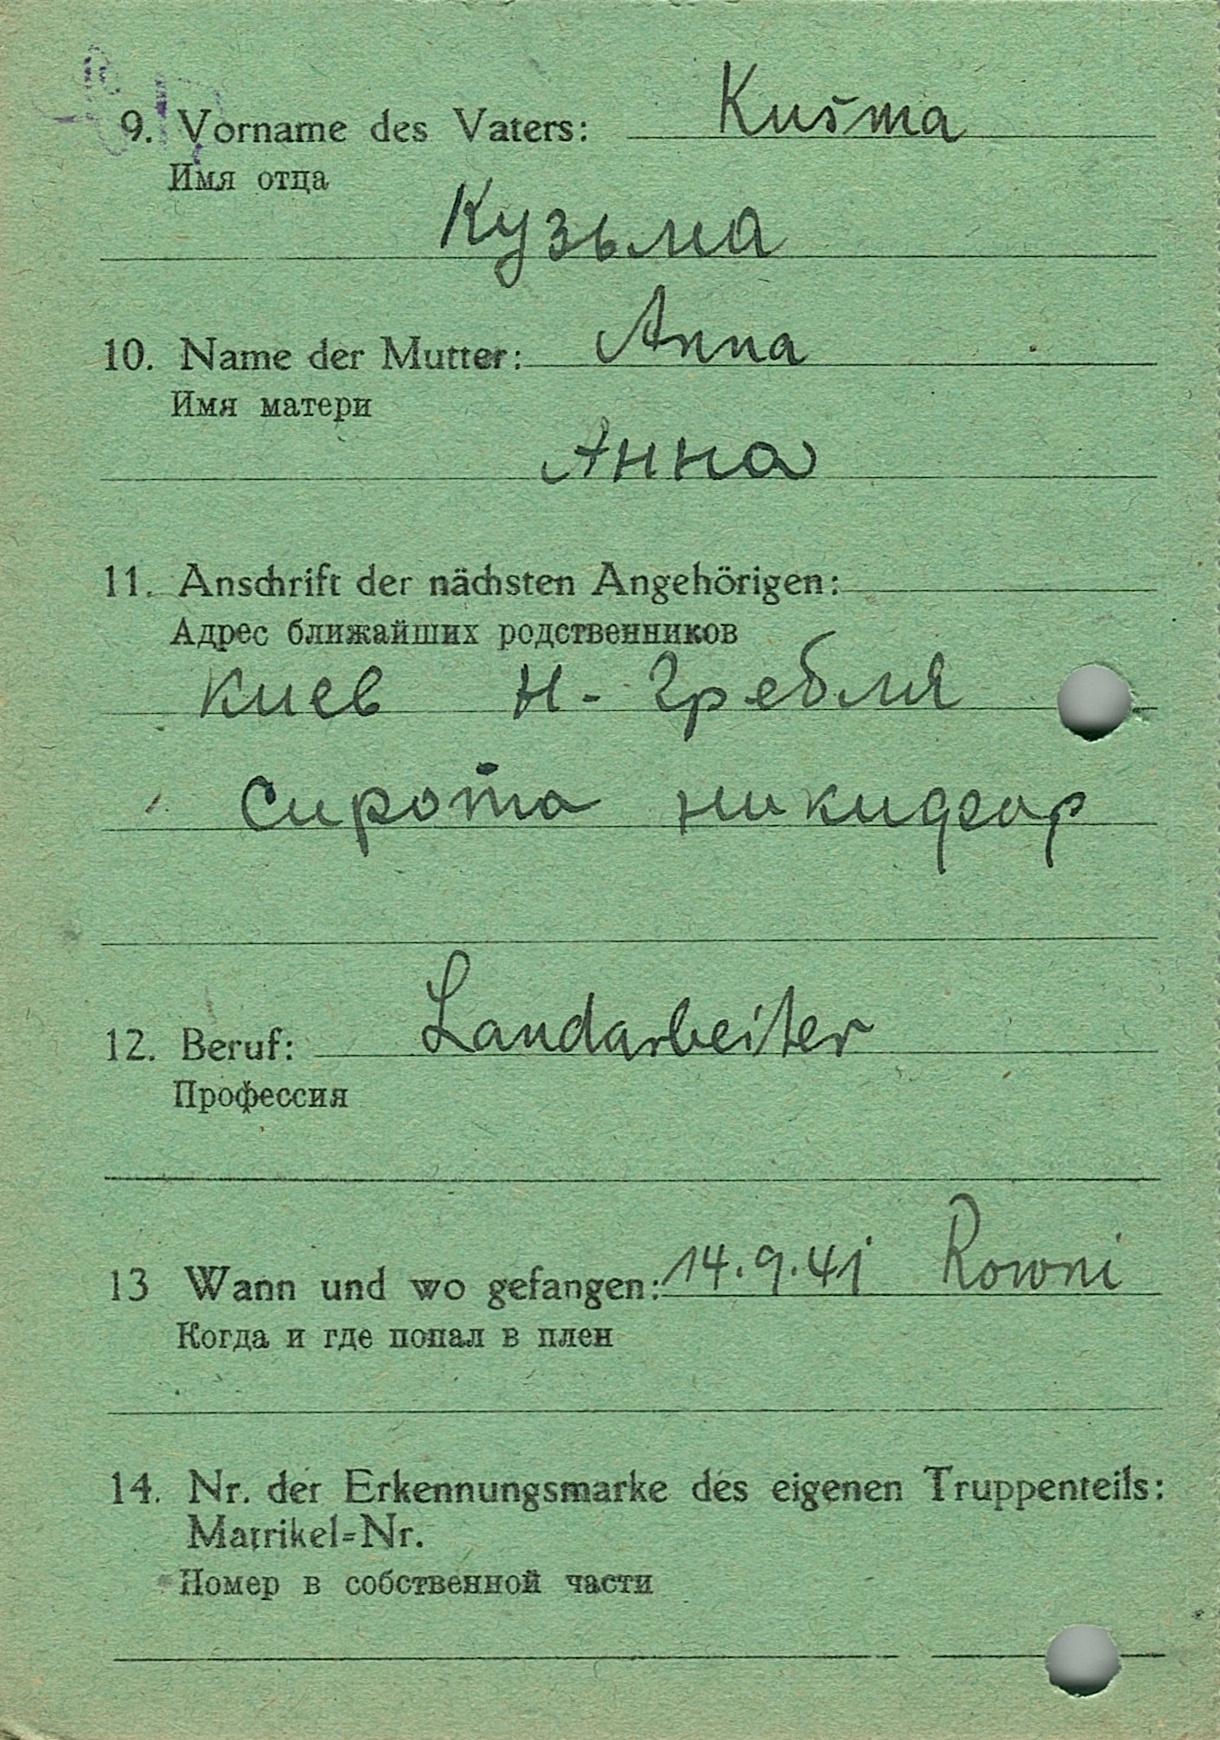 9. Vorname des Vaters: Kusma
Имя отца
Кузьма
10. Name der Mutter: Anna
Имя матери
Анна
11. Anschrift der nächsten Angehörigen:
Адрес ближайших родственников
Киев Н-Гребля
Сирота
12. Beruf: Landarbeiter
Профессия
13 Wann und wo gefangen: 14.9.41 Rowni
Когда и где попал в плен
14. Nr. der Erkennungsmarke des eigenen Truppenteils:
Matrikel=Nr.
Номер в собственной части